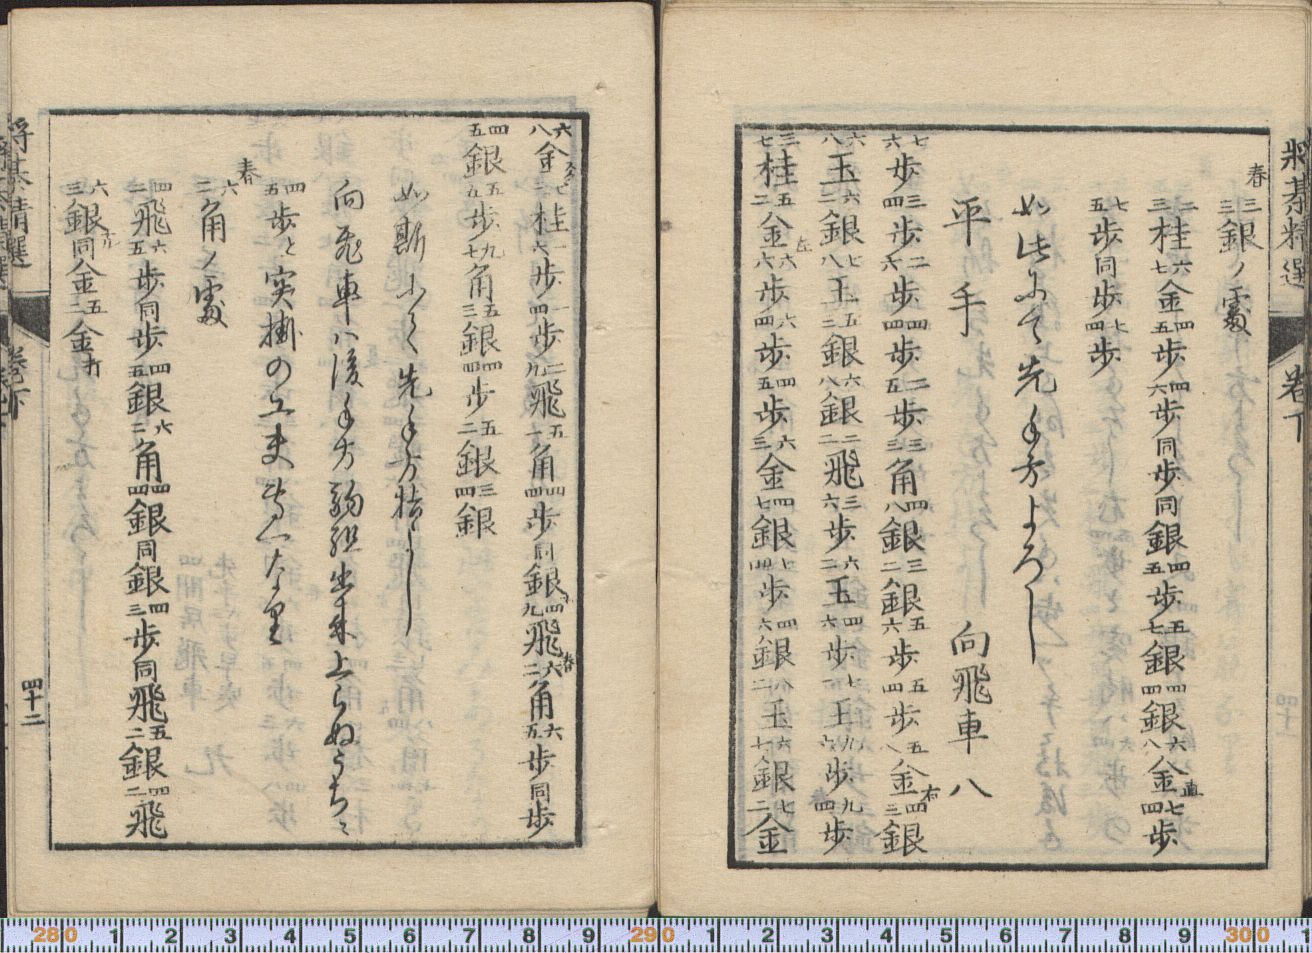 將棊精選 巻下
春 三三銀ノ處
二三桂 六七金 四五歩 四六歩 同歩 同銀 四五歩 五七銀 四四銀 六八金直 七四歩
七五歩 同歩 七四歩
如此にて先手方よろし
平手 向飛車 八
七六歩 三四歩 二六歩 四四歩 二五歩 三三角 四八銀 三二銀 五六歩 五四歩 五八金右 四三銀
六八玉 六二銀 七八玉 五三銀 六八銀 二二飛 三六歩 六二玉 四六歩 七二玉 九六歩 九四歩
三七桂 五二金左 六六歩 六四歩 四五歩 六三金 四七銀 七四歩 四六銀 八二玉 六七銀 七二金
六八金上 七三桂 一六歩 一四歩 二九飛 五一角 四四歩 同銀 四九飛 春 六二角 六五歩 同歩
四五銀 五五歩 九七角 五三銀 四四歩 五二銀 三四銀
如斯にて先手方指よし
向飛車ハ後手方駒組出来上らぬうちニ
四五歩と突掛の工夫専一なり
春 六二角ノ處
四二飛 六五歩 同歩 四五銀 六二角 四四銀 同銀 四三歩 同飛 五二銀 四二飛
六三銀成 同金 五二金打
將棊精選 巻下 四十二